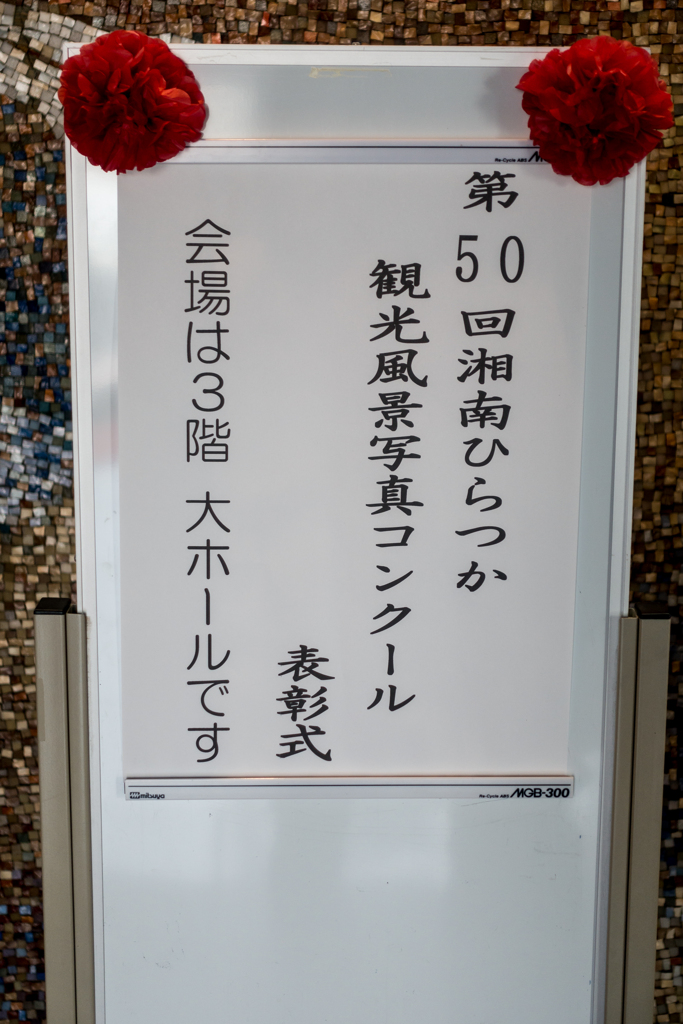 第50回湘南ひらつか
観光風景写真コンクール
表彰式
会場は3階 大ホールです
Re-Cycle ABS M
mitsuya
Re-Cycle ABS MGB-300